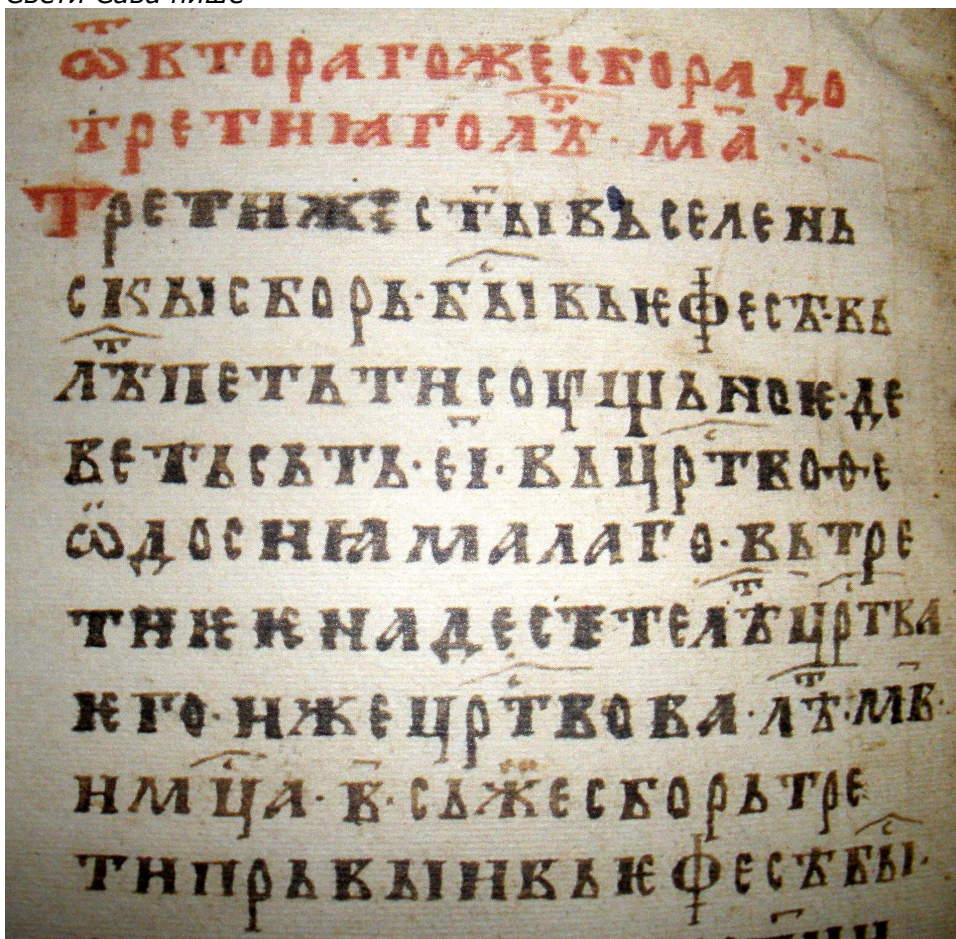 Свети Сава пише
ѿвторагожесбора до
третиꙗголѣⷮ· ма҃·:·
Третижес҃тывьселень
скысборь·быⷭвьѥфесѣ·вь
лѣⷮпетьтисоущьноѥ·де
ветьсьть·е҃і·вьцрⷭтво·ѳе
ѡдосиꙗмалаго·вьтре
тиѥѥнадесетелѣⷮцрⷭтва
ѥго·ижецрⷭтвова·лѣⷮ·мв҃·
имц҃а·в҃·сьжесборьтре
типрьвыивьѥфесѣбыⷭ·